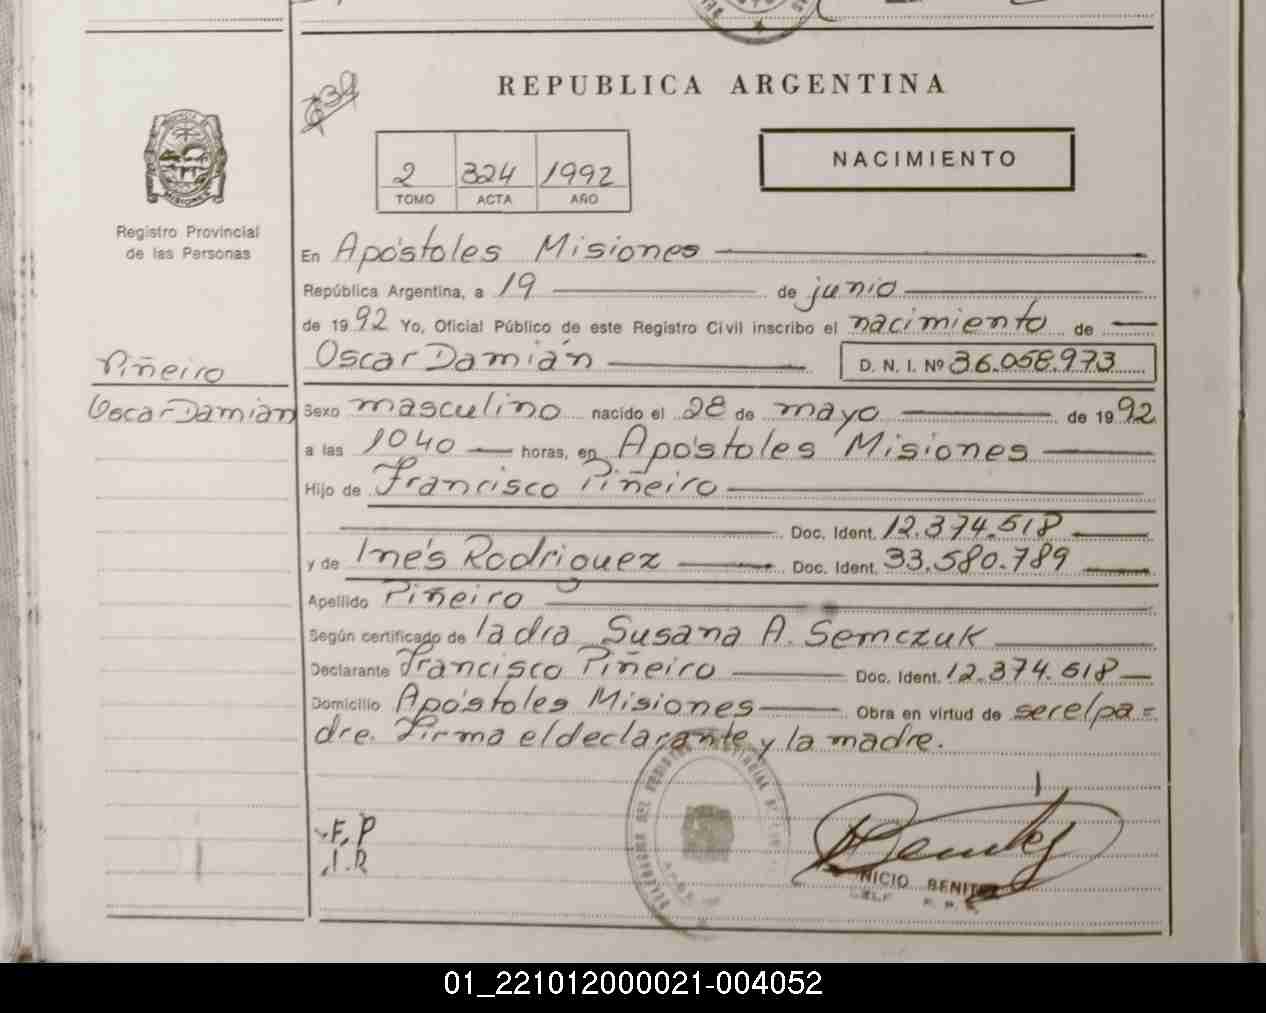 REPUBLICA ARGENTINA
2 324 1992
TOMO ACTA AÑO
NACIMIENTO
MISIONES
Registro Provincial
de las Personas
En Apóstoles Misiones
República Argentina, a 19 de junio
de 1992 Yo, Oficial Público de este Registro Civil inscribo el nacimiento de
Oscar Damián D. N. I. Nº 36.058.973
Piñeiro
Oscar Damian
Sexo masculino nacido el 28 de mayo de 1992
a las 1040 horas, en Apóstoles Misiones
Hijo de Francisco Piñeiro
Doc. Ident. 12.374.518
y de Inés Rodriguez Doc. Ident. 33.580.789
Apellido Piñeiro
Según certificado de la dra Susana A. Semczuk
Declarante Francisco Piñeiro Doc. Ident. 12.374.518
Domicilio Apóstoles Misiones Obra en virtud de ser el pa=
dre. Firma el declarante y la madre.
F. P
I. R
NICIO BENIT
01_221012000021-004052